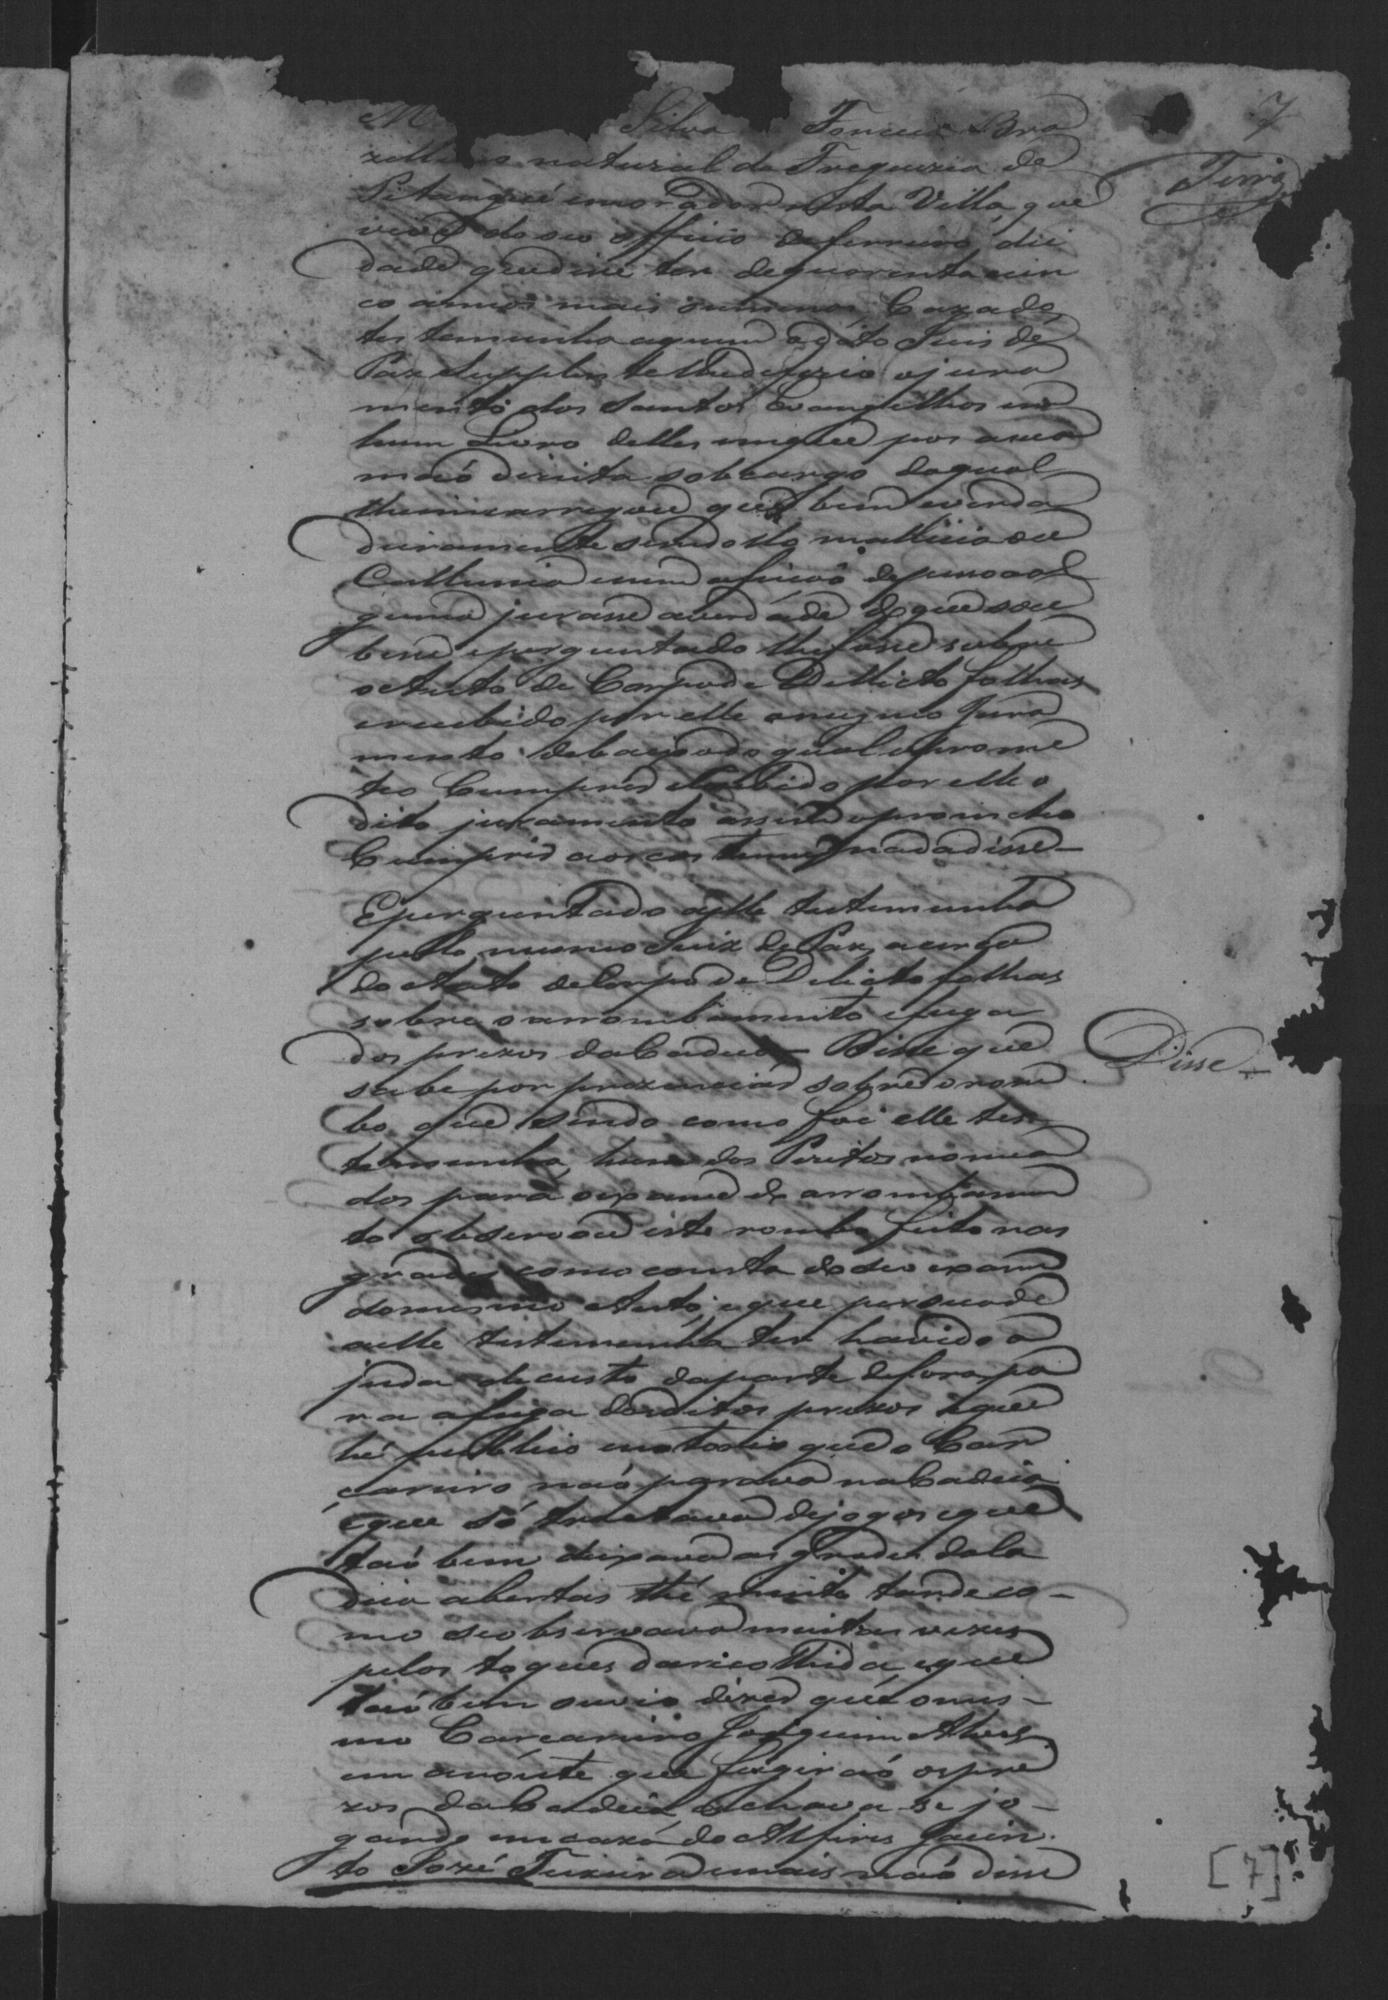 7
M Silva Fonceca Bra
zilleiro natural da Freguezia de
Pitangué morador nesta Villa que
vive do seo officio de ferreiro, dei
dade que disse ter de quarenta e cin
co annos mais ou menos, Cazado,
testemunha aquem o dito Juis de
Paz Supplente lhe diferio o jura
mento dos Santos Evangelhos em
hum Livro delles em que pos a sua
maó direita sob cargo do qual
lhe incarregou que bem e verda
deiramente sem dollo mallicia ou
Callunia nem afeicaó depessoaal
guma jurasse a verdade do que sou
besse e perguntado lhe fosse sobre
o Auto de Corpo de Dellicto folhas
e recebido por elle o mesmo Jura
mento debaixo do qual o prome
teo Cumprir e recebido por elle o
dito juramento assim o prometeo
Cumprir ao costume nada disse
E perguntado a elle testemunha
pello mesmo Juiz de Paz, acerca
do Auto de Corpo de Delicto folhas
sobre o arrombamento e fuga
dos prezos da Cadeia — Disse que
sabe por prezenciar sobre o rom
bo que sendo como foi elle tes
temunha, hum dos Peritos nomea
dos para o exame do arrombamen
to observou este rombo feito nas
grades como consta do seo exame
do mesmo Auto, e que persuade
a elle testemunha ter havido a
juda de custo da parte de fora pa
ra a fuga dos ditos prezos e que
hé publico e notorio que o Car
careiro naó parava na Cadeia
e que só tractava de jogos e que
taó bem deixava as grades da Ca
deia abertas thé muito tarde co-
mo se observava muitas vezes
pelos toques da recolhida, e que
taó bem ouvio dizer que o mes-
mo Carcareiro Joaquim Alves
em a noute que fugiraó os pre
zos da Cadeia achava-se jo-
gando em caza do Alferes Jacin
to Jozé Teixeira e mais naó disse
Disse
[7]